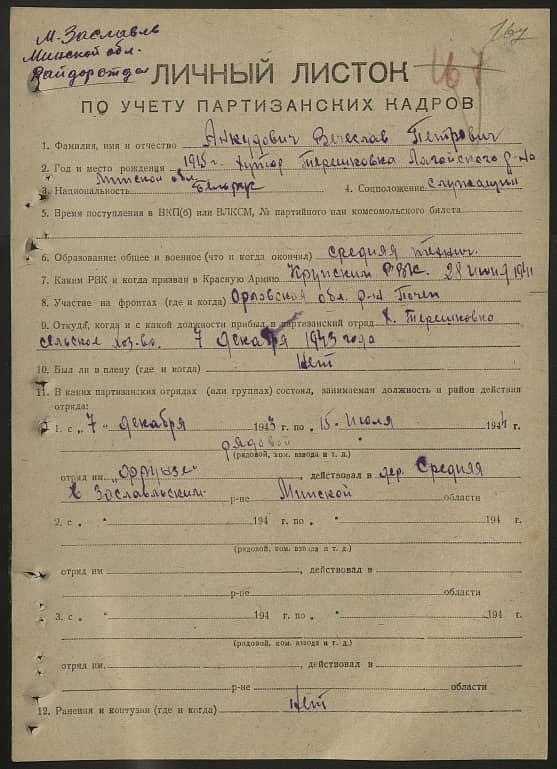 167
М. Заславль
Минской обл.
Райдоротдел
ЛИЧНЫЙ ЛИСТОК 167
ПО УЧЕТУ ПАРТИЗАНСКИХ КАДРОВ
1. Фамилия, имя и отчество Анкудович Вечеслав Петрович
2. Год и место рождения 1915 г. хутор Терешковка Лагойского р-на
Минской обл.
3. Национальность Беларус 4. Соцположение служащий
5. Время поступления в ВКП(б) или ВЛКСМ, № партийного или комсомольского билета
6. Образование: общее и военное (что и когда окончил) средняя технич.
7. Каким РВК и когда призван в Красную Армию Крупским РВК. 28 июня 1941
8. Участие на фронтах (где и когда) Орловской обл. р-н Почеп
9. Откуда, когда и с какой должности прибыл в партизанский отряд х. Терешковка
сельское хоз-во. 7 декабря 1943 года
10. Был ли в плену (где и когда) Нет
11. В каких партизанских отрядах (или группах) состоял, занимаемая должность и район действия
отряда:
1. с „7" декабря 1943 г. по „15" июля 1944 г.
рядовой
(рядовой, ком. взвода и т. д.)
отряд им „Фрунзе", действовал в дер. Средняя
Заславльским р-не Минской области
2. с „ " 194 г. по „ " 194 г.
(рядовой, ком. взвода и т. д.)
отряд им , действовал в
р-не области
3. с „ " 194 г. по „ " 194 г.
(рядовой, ком. взвода и т. д.)
отряд им. , действовал в
р-не области
12. Ранения и контузии (где и когда) Нет